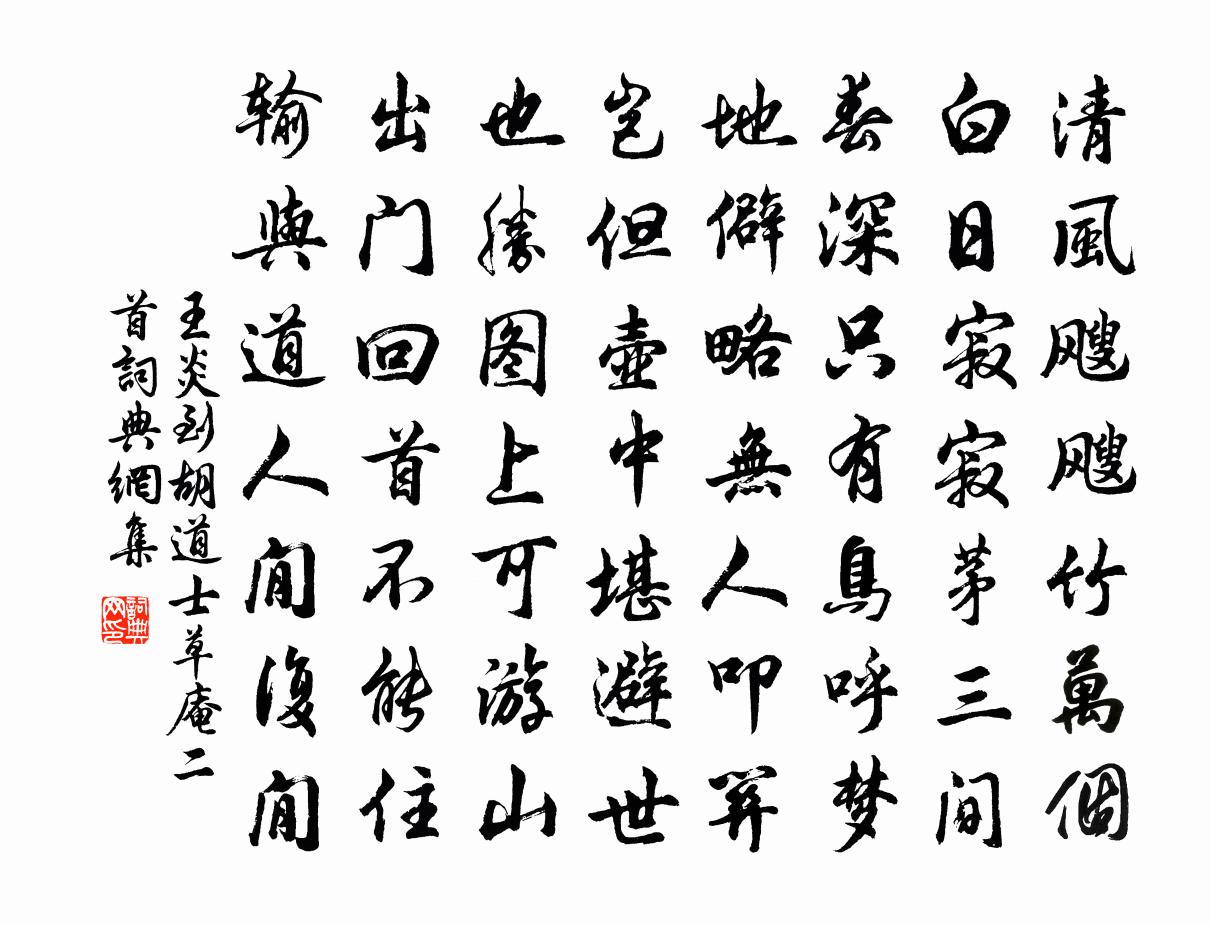 清風颼颼竹萬個
白日寂寂茅三间
春深只有鳥呼梦
地僻略無人叩關
豈但壺中堪避世
也勝图上可游山
出门回首不能住
输與道人閒復閒
王炎到胡道士草庵二
首詞典網集
詞典
网印